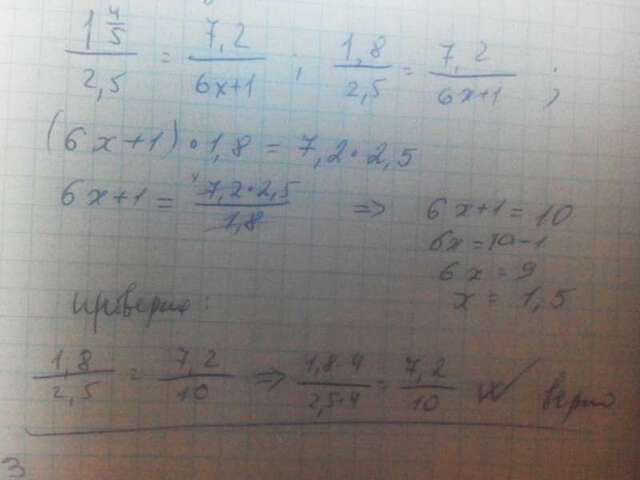 1 4/5 / 2,5 = 7,2 / 6x+1 ; 1,8 / 2,5 = 7,2 / 6x+1 ;
(6x+1)·1,8 = 7,2·2,5
6x+1 = 4 7,2·2,5 / 1,8 => 6x+1=10
6x=10-1
6x=9
x=1,5
проверка:
1,8 / 2,5 = 7,2 / 10 => 1,8·4 / 2,5·4 = 7,2 / 10 верно
3